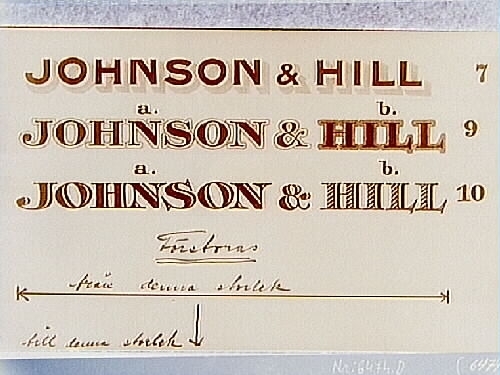 JOHNSON & HILL 7
a. b.
JOHNSON & HILL 9
a. b.
JOHNSON & HILL 10
Förstoras
från denna storlek
till denna storlek
Nr: 647h.D (647